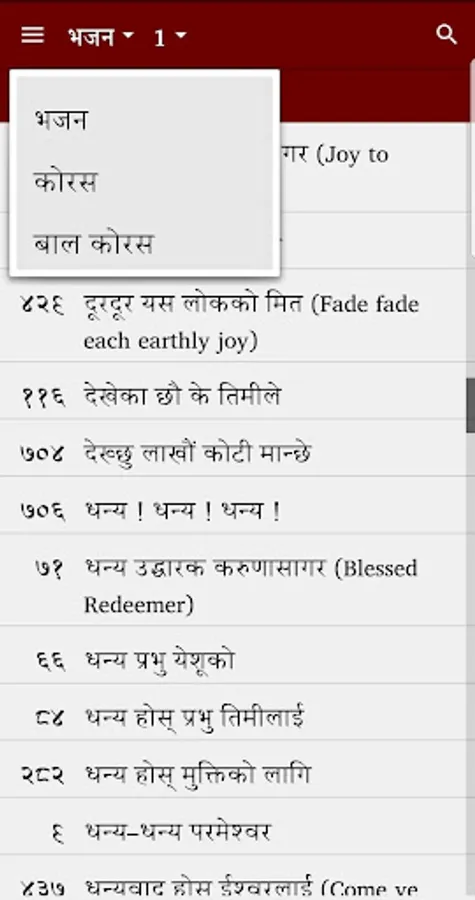 भजन 1
भजन
कोरस
बाल कोरस
गर (Joy to
४२६ दूरदूर यस लोकको मित (Fade fade
each earthly joy)
११६ देखेका छौ के तिमीले
७०४ देख्छु लाखौं कोटी मान्छे
७०६ धन्य ! धन्य ! धन्य !
७१ धन्य उद्धारक करुणासागर (Blessed
Redeemer)
६६ धन्य प्रभु येशूको
८४ धन्य होस् प्रभु तिमीलाई
२८२ धन्य होस् मुक्तिको लागि
६ धन्य–धन्य परमेश्वर
४३७ धन्यवाद होस ईश्वरलाई (Come ye